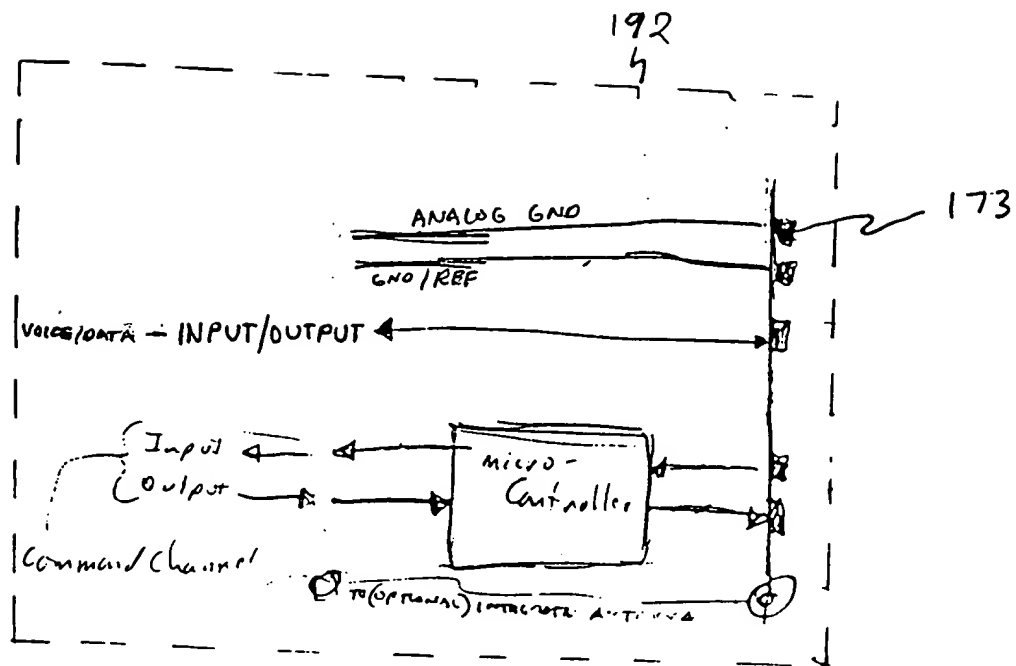 192
ANALOG GND
173
GND/REF
VOICE/DATA - INPUT/OUTPUT
Input
Output
micro-
Controller
Command Channel
TO (OPTIONAL) ANTENNA